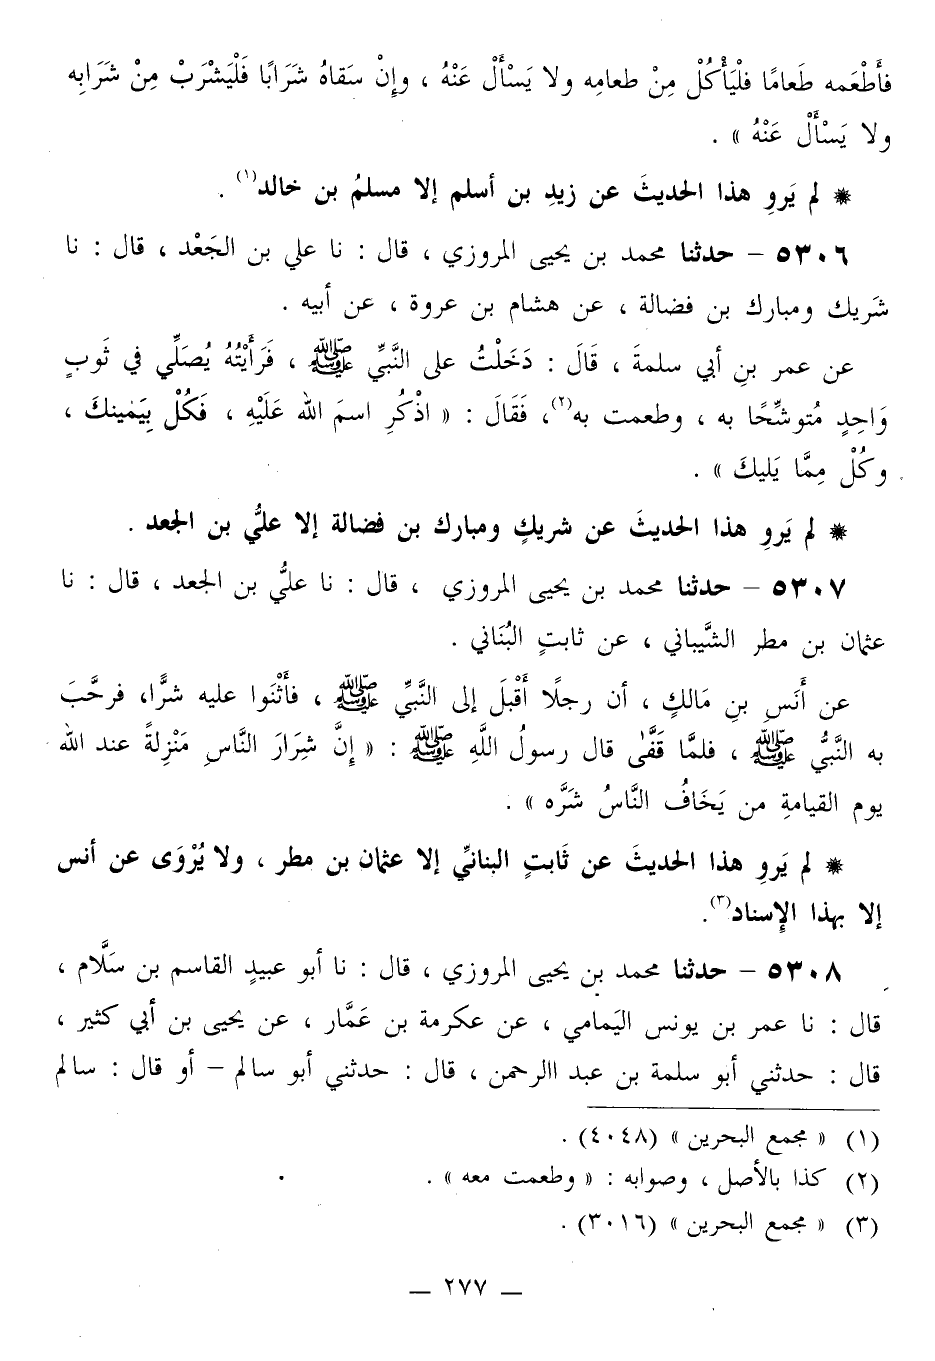 فأَطْعَمه طَعامًا فلْيَأْكُلْ مِنْ طعامِه ولا يَسْأَلْ عَنْهُ ، وإِنْ سَقاهُ شَرَابًا فَلْيَشْرَبْ مِنْ شَرَابِه
ولا يَسْأَلْ عَنْهُ » .
* لم يَروِ هذا الحديثَ عن زيدِ بن أسلم إلا مسلمُ بن خالد(١) .
٥٣٠٦ – حدثنا محمد بن يحيى المروزي ، قال : نا علي بن الجَعْد ، قال : نا
شَريك ومبارك بن فضالة ، عن هشام بن عروة ، عن أبيه .
عن عمر بنِ أبي سلمةَ ، قَالَ : دَخَلْتُ على النَّبيِّ ﷺ ، فَرَأَيْتُهُ يُصَلِّي في ثَوبٍ
وَاحِدٍ مُتوشِّحًا به ، وطعمت به(٢)، فَقَالَ : « اذْكُرِ اسمَ الله عَلَيْهِ ، فَكُلْ بِيَمْينكَ ،
وكُلْ مِمَّا يَليكَ » .
* لم يَروِ هذا الحديثَ عن شريكٍ ومبارك بن فضالة إلا عليُّ بن الجعد .
٥٣٠٧ – حدثنا محمد بن يحيى المروزي ، قال : نا عليُّ بن الجعد ، قال : نا
عثمان بن مطر الشَّيباني ، عن ثابتٍ البُنَاني .
عن أَنَسِ بنِ مَالكٍ ، أن رجلًا أَقْبَلَ إلى النَّبيِّ ﷺ ، فأَثْنَوا عليه شرًّا، فرحَّبَ
به النَّبيُّ ﷺ ، فلمَّا قَفَّى قال رسولُ اللَّهِ ﷺ : « إِنَّ شِرَارَ النَّاسِ مَنْزِلةً عند الله
يوم القيامةِ من يَخَافُ النَّاسُ شَرَّه » .
* لم يَروِ هذا الحديثَ عن ثَابتٍ البنانيِّ إلا عثمان بن مطر ، ولا يُرْوَى عن أنس
إلا بهذا الإِسناد(٣).
٥٣٠٨ – حدثنا محمد بن يحيى المروزي ، قال : نا أبو عبيدٍ القاسم بن سَلَّام ،
قال : نا عمر بن يونس اليَمامي ، عن عكرمة بن عَمَّار ، عن يحيى بن أبي كثير ،
قال : حدثني أبو سلمة بن عبد االرحمن ، قال : حدثني أبو سالم – أو قال : سالم
(١) « مجمع البحرين » (٤٠٤٨) .
(٢) كذا بالأصل ، وصوابه : « وطعمت معه » .
(٣) « مجمع البحرين » (٣٠١٦) .
— ٢٧٧ —